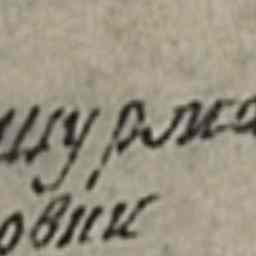 щурма
овик